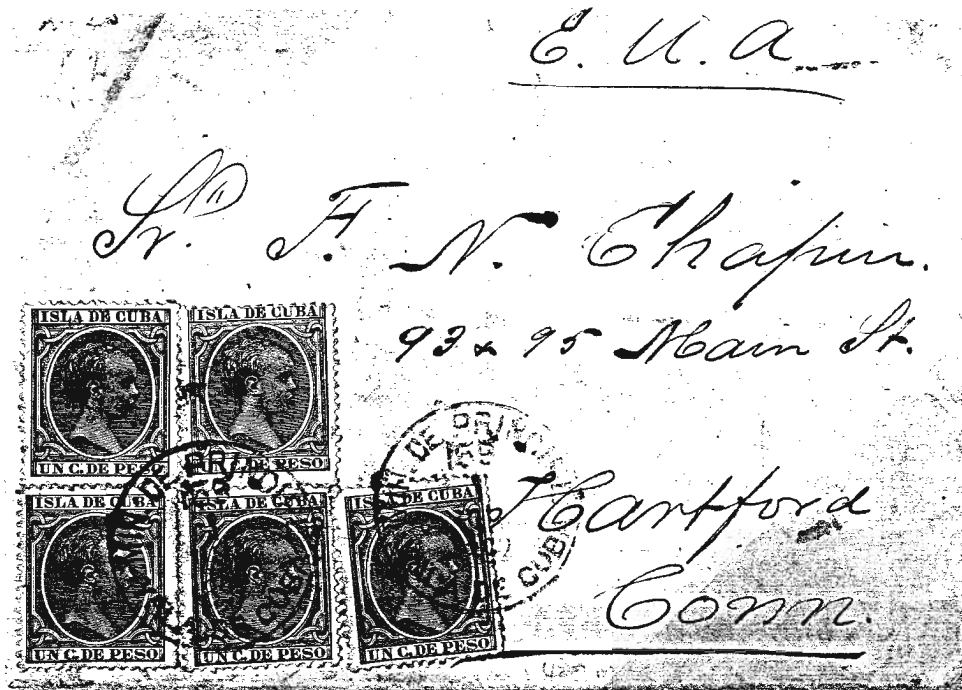 E. U. A
Sr. D. F. N. Chapin.
93 & 95 Main St.
Hartford
Conn.
ISLA DE CUBA
UN C. DE PESO
ISLA DE CUBA
UN C. DE PESO
ISLA DE CUBA
UN C. DE PESO
ISLA DE CUBA
UN C. DE PESO
ISLA DE CUBA
UN C. DE PESO
DE
CUBA
DE
DE CUBA